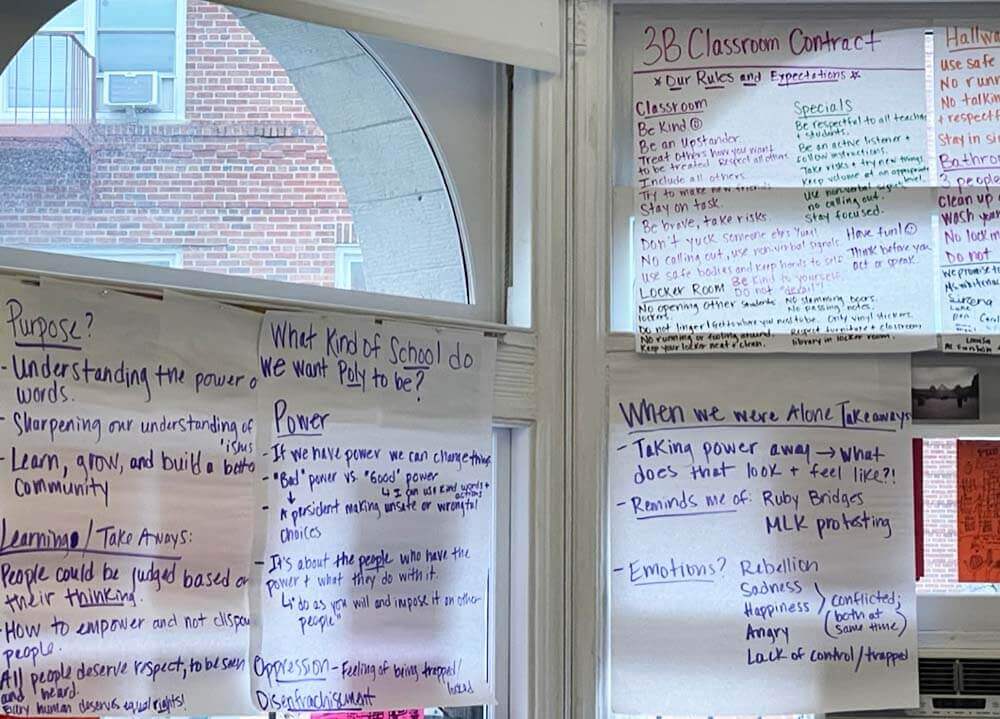 Purpose?
- Understanding the power o
words.
- Sharpening our understanding of
'isms
- Learn, grow, and build a bette
community
Learnings / Take Aways:
People could be judged based on
their thinking.
- How to empower and not dispow
people.
All people deserve respect, to be seen
and heard.
Every human deserves equal rights!
What Kind of School do
we want Poly to be?
Power
- If we have power we can change things
- "Bad" power vs "Good" power
↳ I can use kind words +
actions
- A president making unsafe or wrongful
choices
- It's about the people who have the
power + what they do with it.
↳ "do as you will and impose it on other
people"
Oppression - Feeling of being trapped/
Disenfrachisement
3B Classroom Contract
* Our Rules and Expectations *
Classroom
Be Kind ☺
Be an Upstander
Treat others how you want
to be treated. Respect all others
Include all others.
Try to make new friends
Stay on task.
Be brave, take risks.
Don't yuck someone else's Yum!
No calling out, use non-verbal signals.
Use safe bodies and keep hands to self
Be kind to yourself.
Do not "derail"!
Specials
Be respectful to all teachers
+ students.
Be an active listener +
follow instructions.
Take risks + try new things.
Keep volume at an appropriate
level.
Use non-verbal signals
no calling out.
Stay focused.
Have fun! ☺
Think before you
act or speak.
Locker Room
No opening other students
lockers.
Do not linger! Get to where you need to be.
No running or fooling around
Keep your locker neat + clean.
No slamming doors.
No passing notes
Only vinyl stickers.
Respect furniture + classroom
library in locker room.
Hallwa
use safe
No runn
No talkin
+ respectf
Stay in si
Bathro
3 people
clean up
wash you
No lock
Do not
We promise to
When we were Alone Takeaways
- Taking power away → what
does that look + feel like?!
- Reminds me of: Ruby Bridges
MLK protesting
- Emotions? Rebellion
Sadness
Happiness
Angry
Lack of control/trapped
conflicted;
(both at
same time)